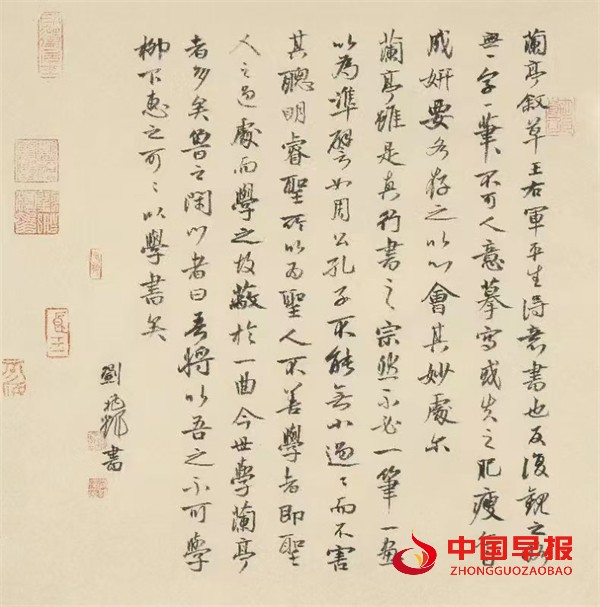 蘭亭敘草王右軍平生得意書也反復觀之略
無一字一筆不可人意摹寫或失之肥瘦亦自
成妍要各存之以心會其妙處尔
蘭亭雖是真行書之宗然不必一筆一畫
以為準譬如周公孔子不能無小過〻而不害
其聰明睿聖所以為聖人不善學者即聖
人之過處而學之故蔽於一曲今世學蘭亭
者多矣魯之閉門者曰吾將以吾之不可學
柳下惠之可〻以學書矣
劉 書
中国早报
ZHONGGUOZAOBAO